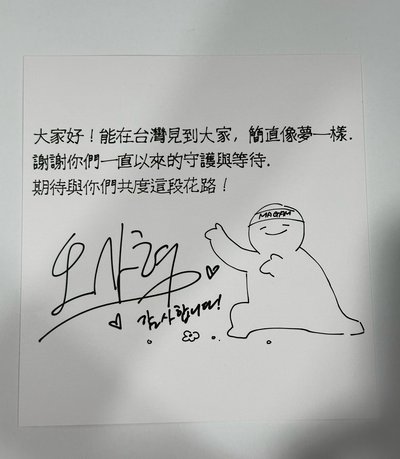 大家好！能在台灣見到大家，簡直像夢一樣.
謝謝你們一直以來的守護與等待.
期待與你們共度這段花路！
MAGAM
감사합니다!